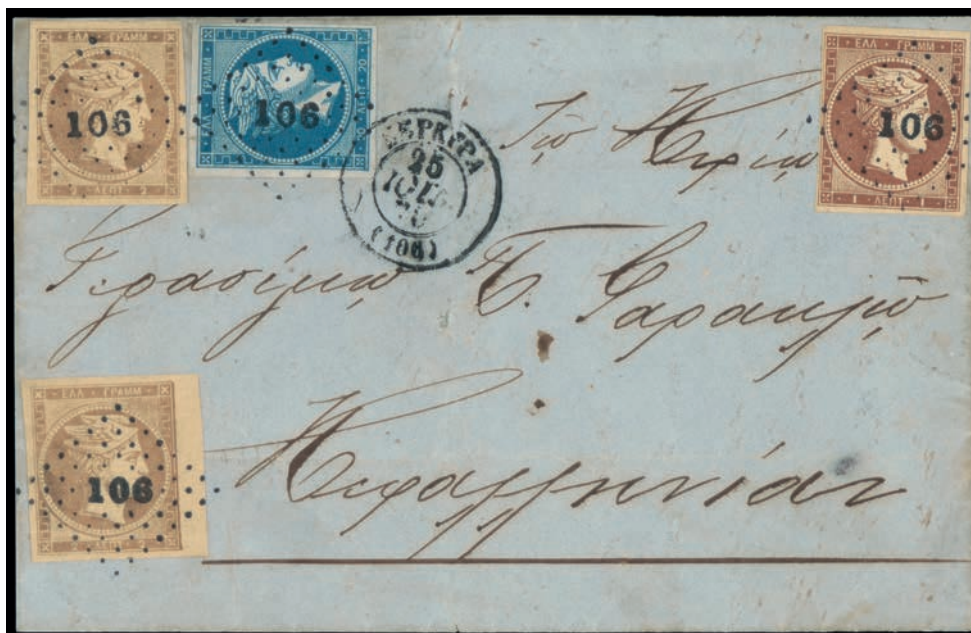 ΕΛΛ ΓΡΑΜΜ
106
2 ΛΕΠΤ 2
ΕΛΛ ΓΡΑΜΜ
20 20
106
ΚΕΡΚΥΡΑ
25
ΙΟΥΛ
(106)
ΕΛΛ ΓΡΑΜΜ
106
1 ΛΕΠΤ 1
Τῷ Κυρίῳ
Γερασίμῳ
ΕΛΛ ΓΡΑΜΜ
106
2 ΛΕΠΤ 2
Κεφαλληνίαν